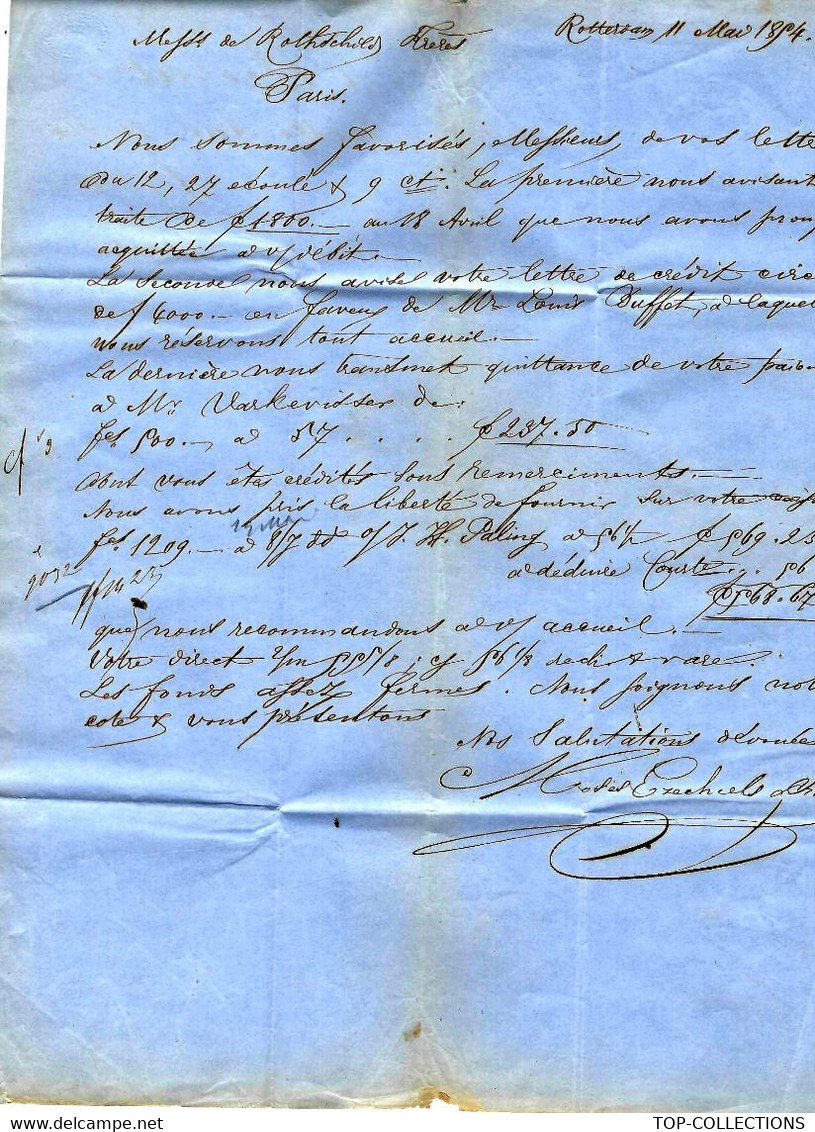 Rotterdam 11 Mai 1854.
Messrs de Rothschild Frères
Paris.
Nous sommes favorisés, Messieurs, de vos lettre
du 12, 27 écoulé & 9 ct. La première nous avisant
traite de f 1800.— au 18 Avril que nous avons prom
acquittée a v/ débit.—
La seconde nous avise votre lettre de crédit circ
de f 4000.— en faveur de Mr Louis Buffet, a laquel
nous réservons tout accueil.—
La dernière nous transmet quittance de votre paie
a Mr Varkevisser de:
fcs 500.— a 57 . . . . f 237.50
dont vous êtes crédités sous remerciments.—
Nous avons pris la liberté de fournir sur votre
fcs 1209.— a 8/7 dd o/ J. H. Paling a 56½ f 569.23
a déduire Courte . 56
f 568.67
que nous recommandons a v/ accueil.—
Votre direct 2/m 55 5/8; 56 1/8 rare.
Les fonds assez fermes. Nous joignons not
cote & vous présentons
Nos Salutations dévouée
Moses Ezechiels
TOP-COLLECTIONS